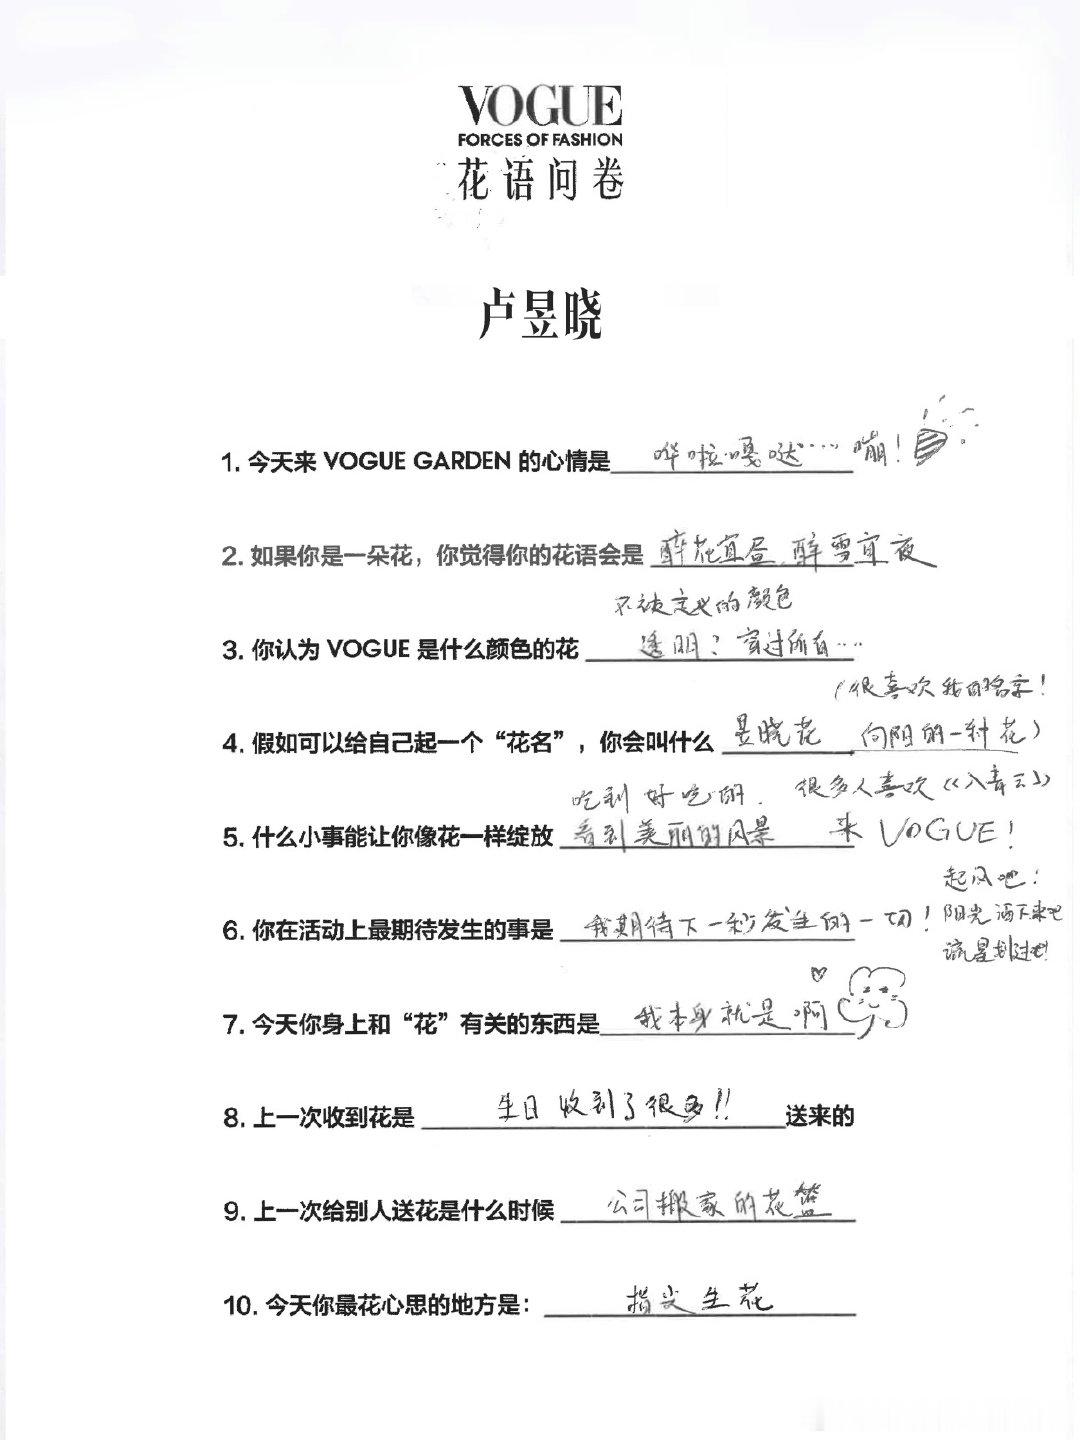 VOGUE
FORCES OF FASHION
花语问卷
卢昱晓
1. 今天来 VOGUE GARDEN 的心情是 哗啦嘎哒……嘣！
2. 如果你是一朵花，你觉得你的花语会是 醉花宜昼，醉雪宜夜
不被定义的颜色
3. 你认为 VOGUE 是什么颜色的花 透明？穿过所有…
（很喜欢我的名字！
4. 假如可以给自己起一个“花名”，你会叫什么 昱晓花 向阳的一种花）
吃到好吃的． 很多人喜欢《入青云》
5. 什么小事能让你像花一样绽放 看到美丽的风景 来 VOGUE！
起风吧！
6. 你在活动上最期待发生的事是 我期待下一秒发生的一切！ 阳光洒下来吧
流星划过吧！
7. 今天你身上和“花”有关的东西是 我本身就是啊
8. 上一次收到花是 生日收到了很多!! 送来的
9. 上一次给别人送花是什么时候 公司搬家的花篮
10. 今天你最花心思的地方是： 指尖生花